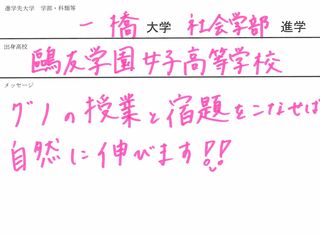 進学先大学 学部・科類等
一橋 大学 社会学部 進学
出身高校
鷗友学園女子高等学校
メッセージ
グノの授業と宿題をこなせば
自然に伸びます!!